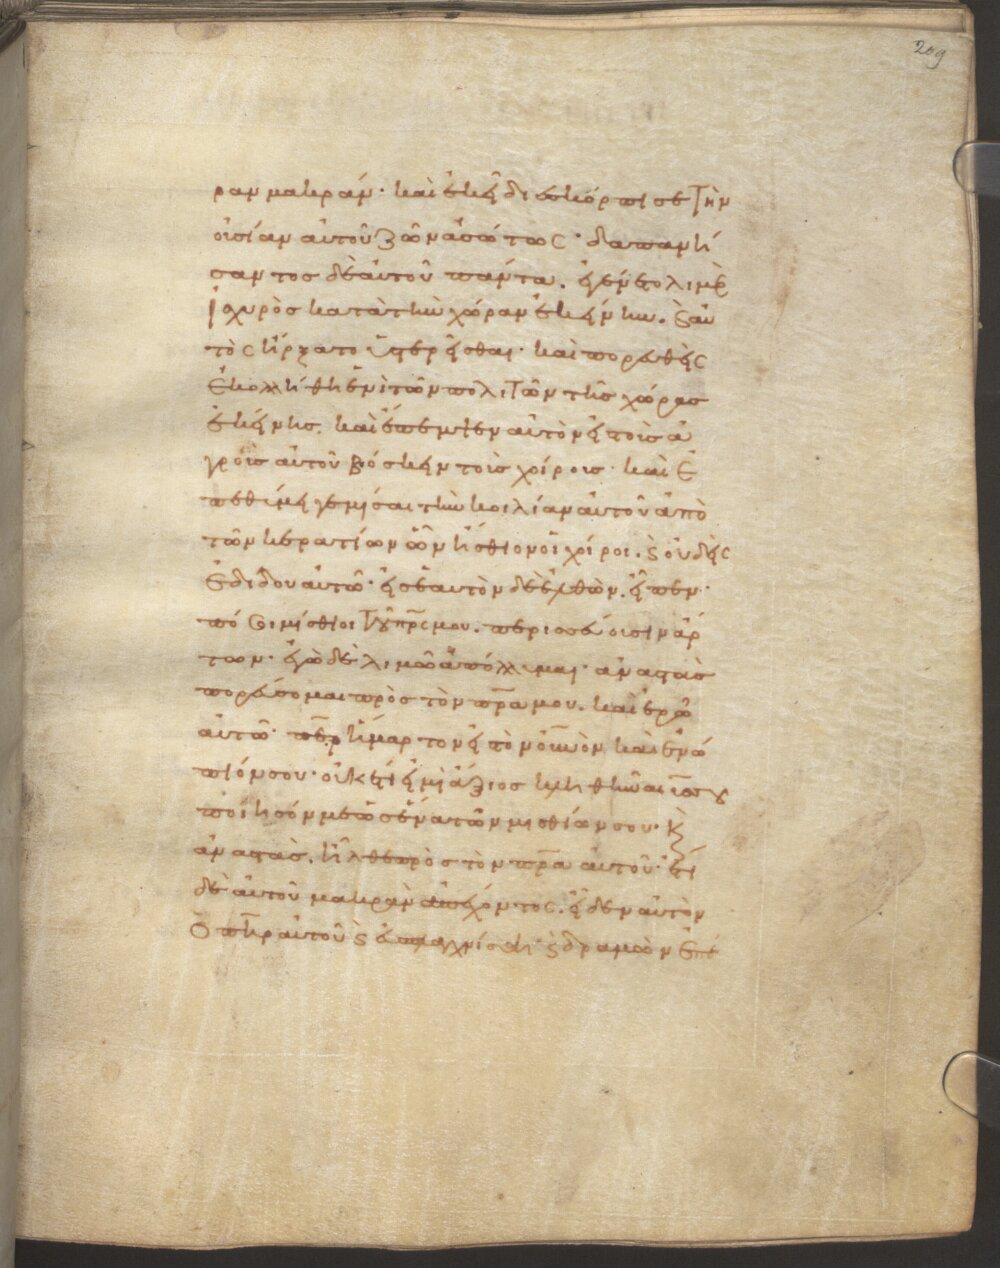 209
ραν μακράν· καὶ ἐκεῖ διεσκόρπισε τὴν
οὐσίαν αὐτοῦ ζῶν ἀσώτως· δαπανή
σαντος δὲ αὐτοῦ πάντα. ἐγένετο λιμὸς
ἰσχυρὸς κατὰ τὴν χώραν ἐκείνην. ϗ αὐ
τὸς ἤρξατο ὑστερεῖσθαι· καὶ πορευθεὶς
ἐκολλήθη ἑνὶ τῶν πολιτῶν τῆς χώρας
ἐκείνης. καὶ ἔπεμψεν αὐτὸν εἰς τοὺς ἀ
γροὺς αὐτοῦ βόσκειν τοὺς χοίρους· καὶ ἐ
πεθύμει γεμίσαι τὴν κοιλίαν αὐτοῦ ἀπὸ
τῶν κερατίων ὧν ἤσθιον οἱ χοῖροι. ϗ οὐδεὶς
ἐδίδου αὐτῶ· εἰς ἑαυτὸν δὲ ἐλθὼν. εἶπεν·
πόσοι μίσθιοι τοῦ πρς μου. περισσεύουσιν ἄρ
των· ἐγὼ δὲ λιμῶ ἀπόλλυμαι· ἀναστὰς
πορεύσομαι πρὸς τὸν πρα μου. καὶ ἐρῶ
αὐτῶ· περ ἥμαρτον εἰς τὸν οὐνὸν καὶ ἐνώ
πιόν σου· οὐκέτι εἰμὶ ἄξιος κληθῆναι υσ σου
ποίησόν με ὡς ἕνα τῶν μισθίων σου· ϗ
ἀναστὰς. ἦλθε πρὸς τὸν πρα αὐτοῦ· ἔτι
δὲ αὐτοῦ μακρὰν ἀπέχοντος. εἶδεν αὐτὸν
ὁ πηρ αὐτοῦ ϗ ἐσπλαγχνίσθη· ϗ δραμὼν ἐπέ